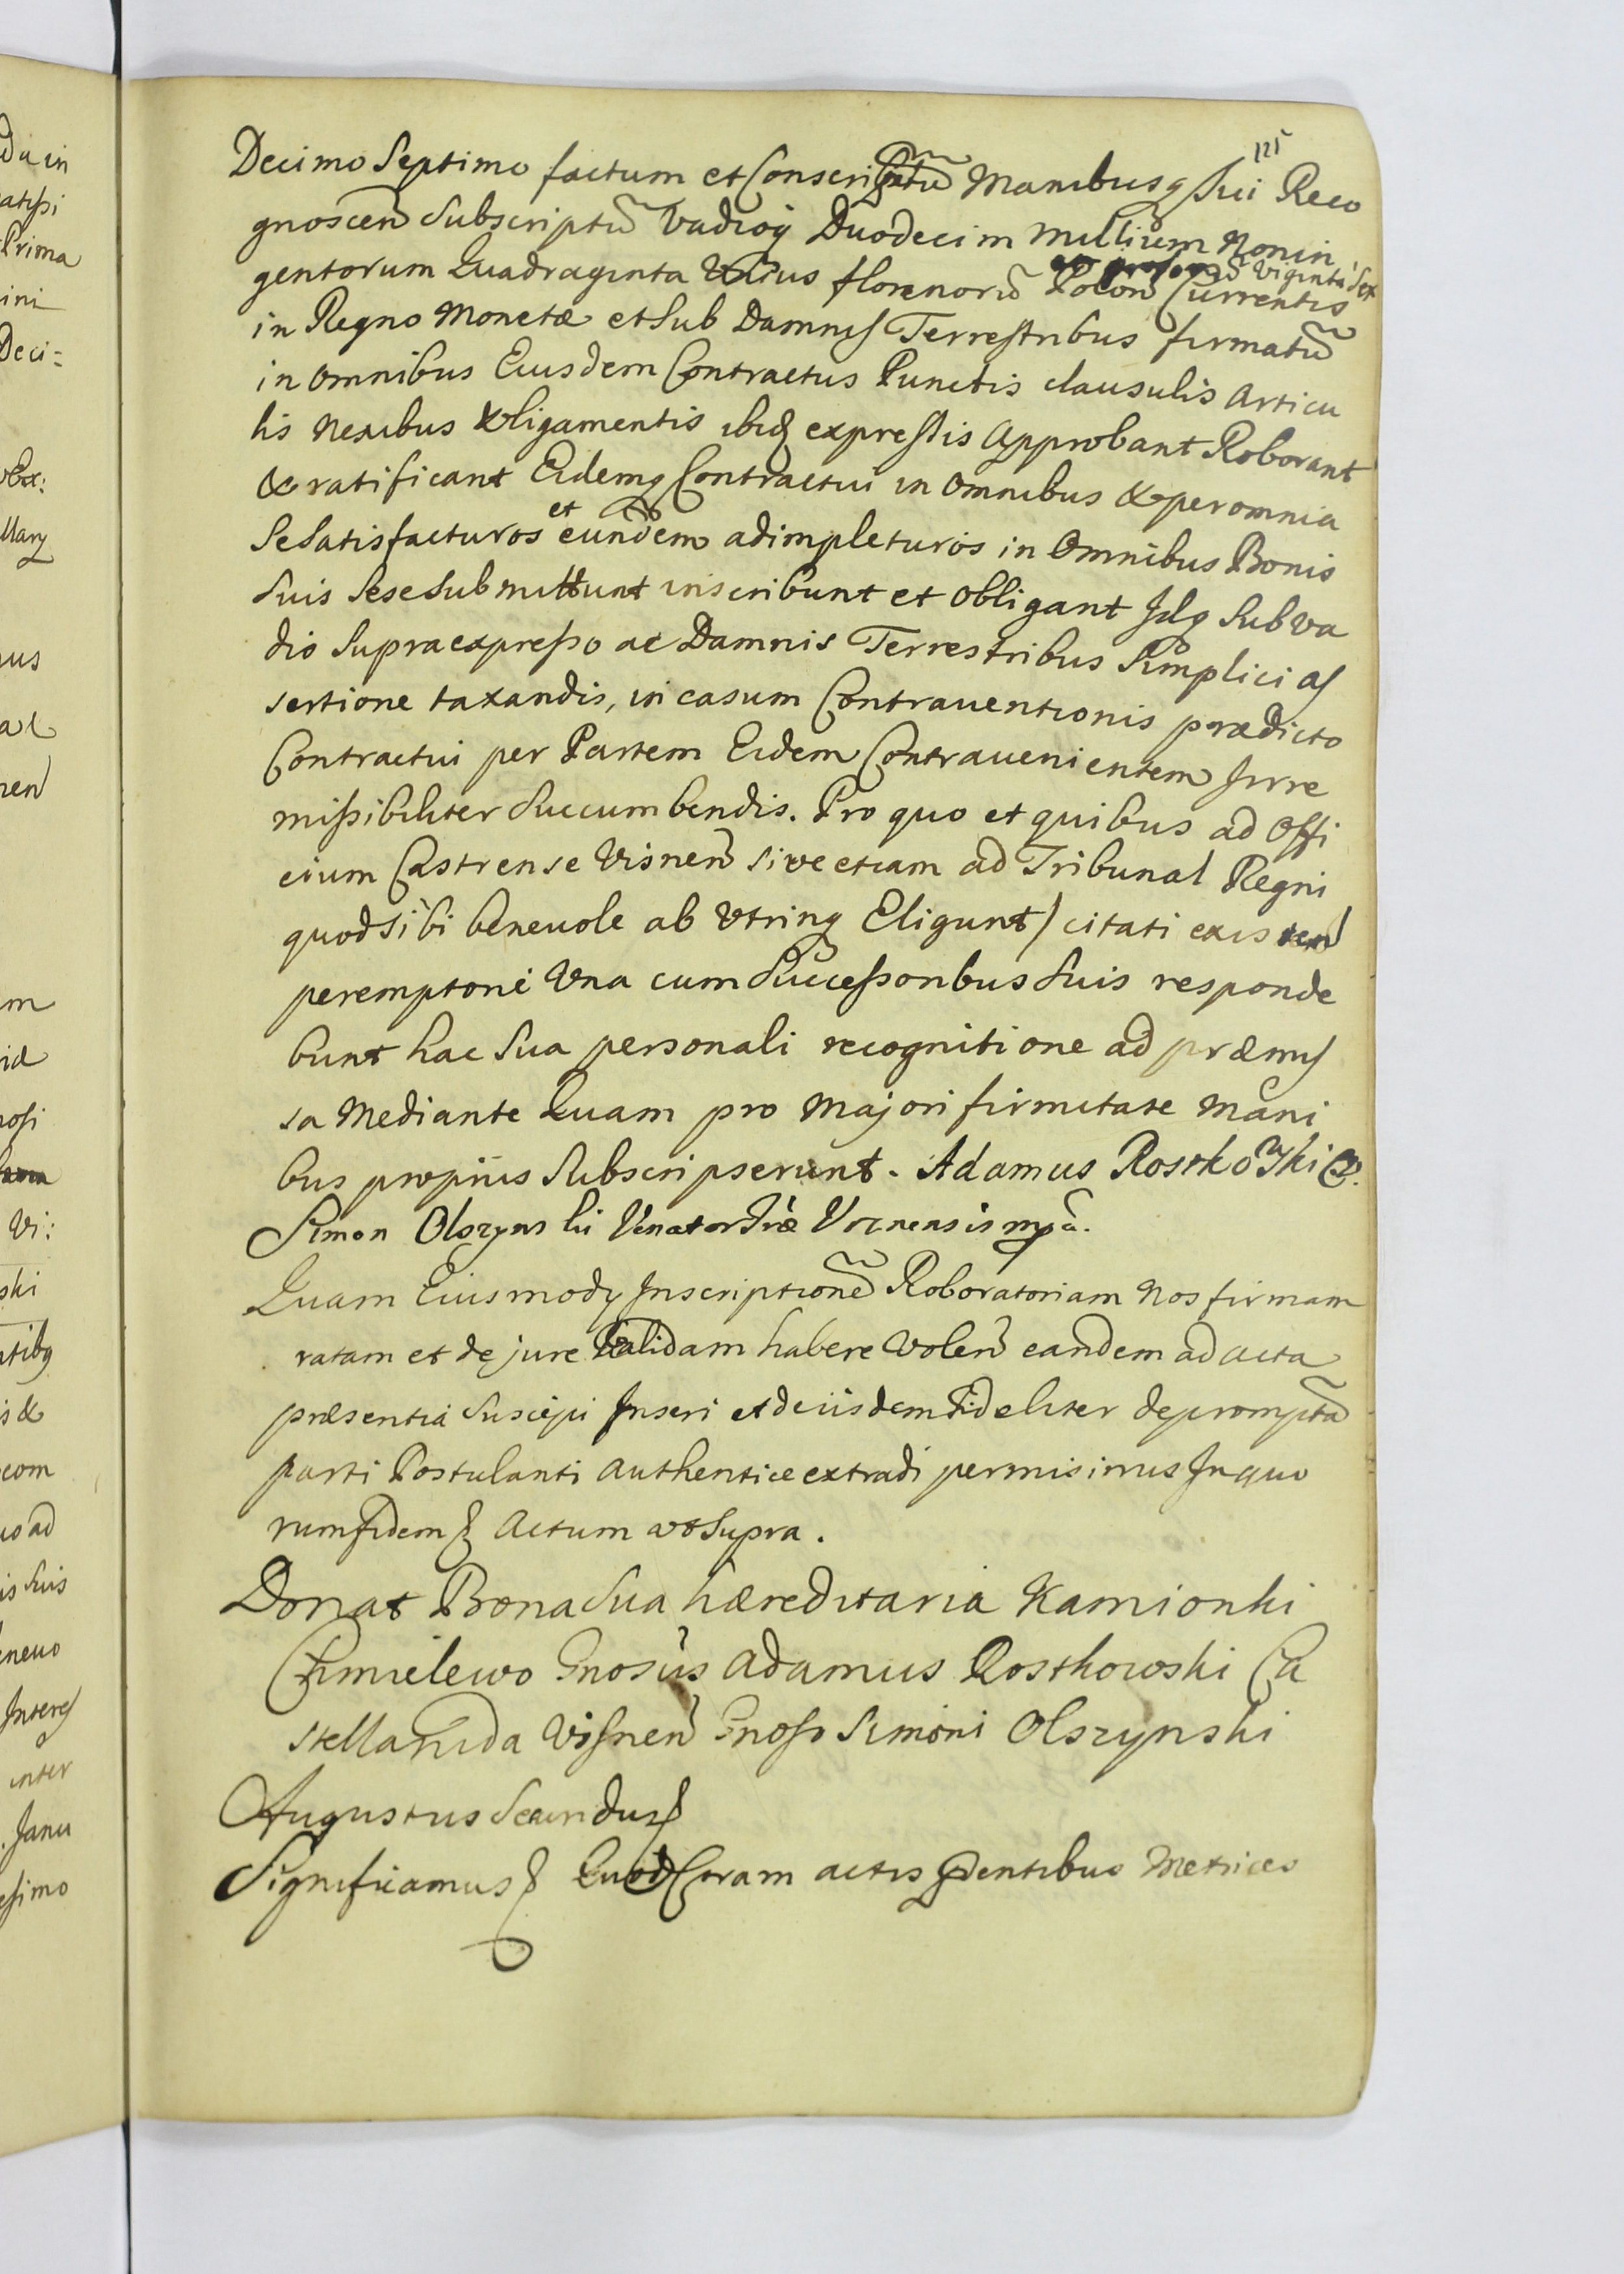 125
Decimo Septimo factum et Conscriptũ Manibusq Sui Reco
gnoscen̄ Subscriptũ Vadioq Duodecim Millium Nonin
gentorum Quadraginta Unius florenorũ Polon̄ Currentis
Viginti Sex
in Regno Monetæ et Sub Damnis Terrestribus firmatũ
in omnibus Eiusdem Contractus Punctis clausulis Articu
lis Nexibus & ligamentis ibiq expressis Approbant Roborant
& ratificant Eidemq Contractui in omnibus & per omnia
Se Satisfacturos et eundem adimpleturos in Omnibus Bonis
Suis Sese Submittunt inscribunt et obligant Idq Sub va
dio Supra expresso ac Damnis Terrestribus Simplici as
sertione taxandis, in casum Contrauentionis prædicto
Contractui per Partem Eidem Contrauenientem Irre
missibiliter Succumbendis. Pro quo et quibus ad Offi
cium Castrense Visnen̄ sive etiam ad Tribunal Regni
quod sibi beneuole ab Utrinq Eligunt) citati existen̄
peremptorie Una cum Successoribus Suis responde
bunt hac Sua personali recognitione ad præmis
sa Mediante Quam pro Majori firmitate Mani
bus propriis Subscripserunt. Adamus Rostkowski C. V.
Simon Olszynski Venator Træ Viznensis mpa.
Quam Eiusmody Inscriptionẽ Roboratoriam Nos firmam
ratam et de jure Validam habere Volen̄ eandem ad acta
præsentia Suscipi Inseri et de iisdem Fideliter depromptã
parti Postulanti Authentice extradi permisimus In quo
rum fidem & Actum ut Supra.
Donat Bona Sua hæreditaria Kamionki
Chmielewo Gnosus Adamus Rostkowski Ca
stellanida Visnen̄ Gnoso Simoni Olszynski
Augustus Secundus &
Significamus & Quod Coram actis pñtibus Metrices